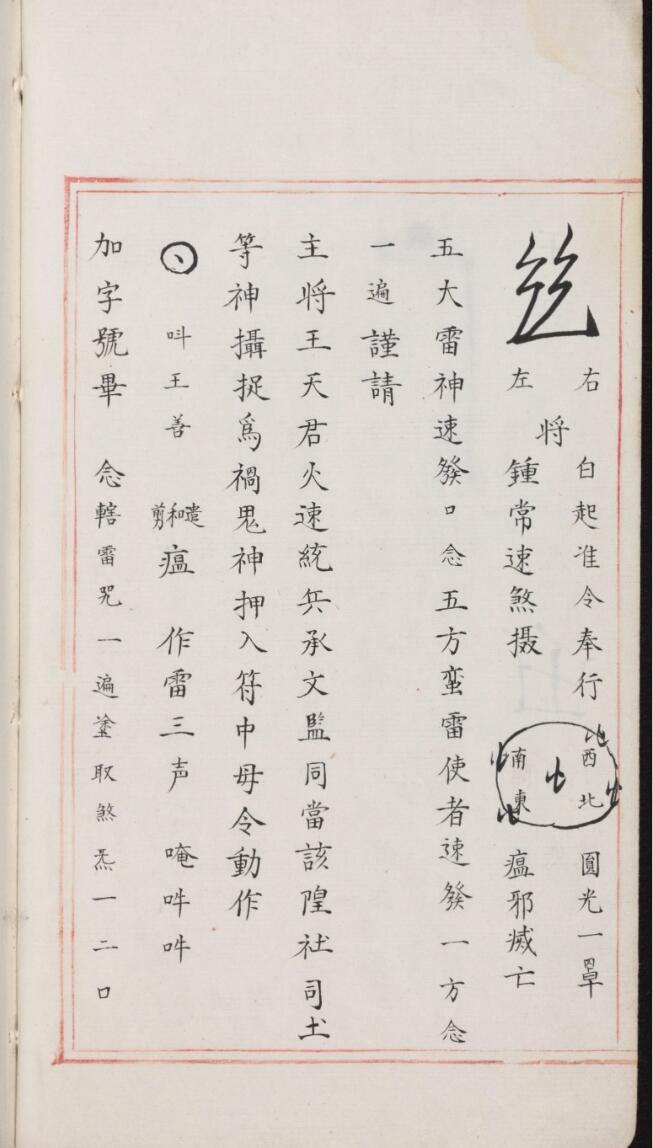 右 白起准令奉行 西北 圓光一罩
将
左 鍾常速煞摄 南東 瘟邪滅亡
五大雷神速發口念五方蛮雷使者速發一方念
一遍謹請
主将王天君火速統兵承文監同當該隍社司土
等神攝捉爲禍鬼神押入符中毋令動作
呌王善 遣和剪瘟 作雷三声 唵吽吽
加字號畢 念轄雷咒一遍塗取煞炁一二口